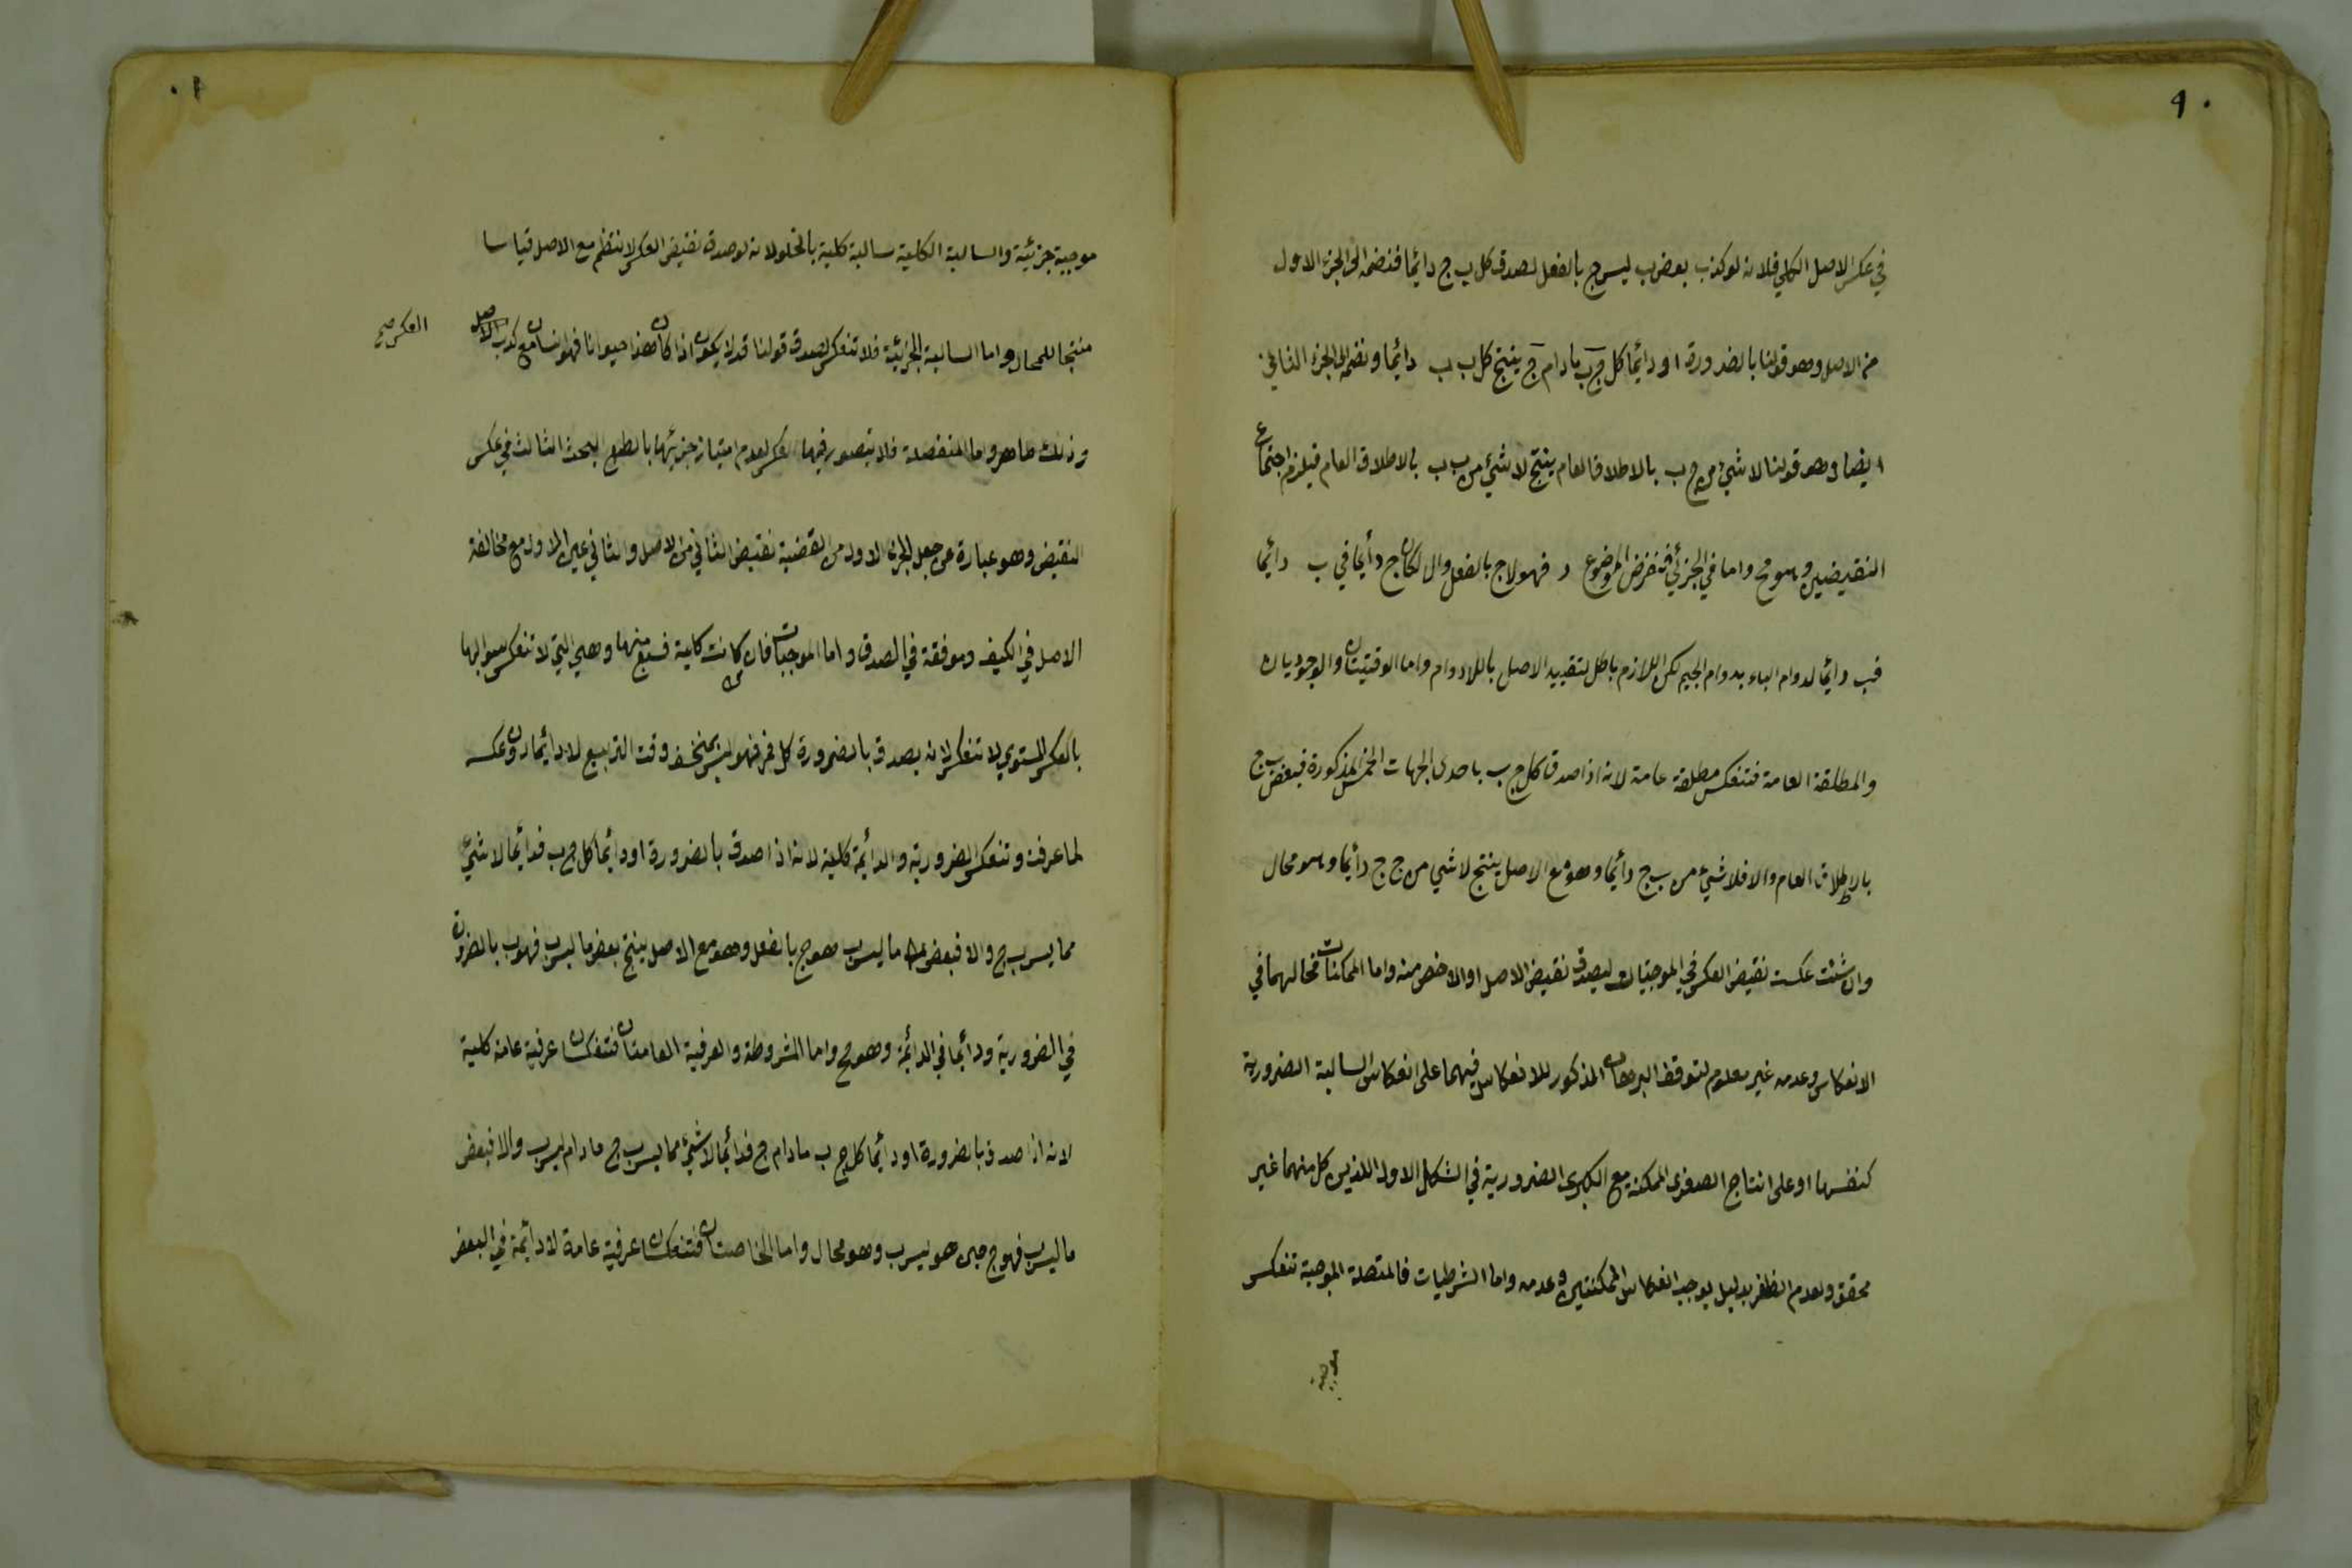 ٩٠
في عكس الاصل الكلي فلانه لو كذب بعض ب ليس ج بالفعل لصدق كل ب ج دائما فنضمه الى الجزء الاول
من الاصل وهو قولنا بالضرورة او دائما كل ج ب مادام ج ينتج كل ب ب دائما ونضمه الى الجزء الثاني
ايضا وهو قولنا لا شيء من ج ب بالاطلاق العام ينتج لا شيء من ب ب بالاطلاق العام فيلزم اجتماع
النقيضين وهو مح واما في الجزئي فنفرض الموضوع د فهو لاج بالفعل والا لكان ج دائما في ب دائما
فب دائما لدوام الباء بدوام الجيم لكن اللازم باطل لتقييد الاصل باللادوام واما الوقتيتان والوجوديان
والمطلقة العامة فتنعكس مطلقة عامة لانه اذا صدق كل ج ب باحدى الجهات الخمس المذكورة فبعض ب ج
بالاطلاق العام والا فلا شيء من ب ج دائما وهو مع الاصل ينتج لا شيء من ج ج دائما وهو محال
وان شئت عكست نقيض العكس في الموجبات ليصدق نقيض الاصل او الاخص منه واما الممكنات فحالهما في
الانعكاس وعدمه غير معلوم لتوقف البرهان المذكور للانعكاس فيهما على انعكاس السالبة الضرورية
كنفسها او على انتاج الصغرى الممكنة مع الكبرى الضرورية في الشكل الاول اللذين كل منهما غير
محقق ولعدم الظفر بدليل يوجب انعكاس الممكنتين وعدمه واما الشرطيات فالمتصلة الموجبة تنعكس
موجبة
موجبة جزئية والسالبة الكلية سالبة كلية بالخلو لانه لو صدق نقيض العكس لانتظم مع الاصل قياسا
منتجا للمحال واما السالبة الجزئية فلا تنعكس لصدق قولنا قد لا يكون اذا كان هذا حيوانا فهو انسان مع كذب الاصل
العكس صح
وذلك ظاهر واما المنفصلة فلا يتصور فيها العكس لعدم امتياز جزئيها بالطبع البحث الثالث في عكس
النقيض وهو عبارة عن جعل الجزء الاول من القضية نقيض الثاني من الاصل والثاني عين الاول مع مخالفة
الاصل في الكيف وموفقة في الصدق واما الموجبات فان كانت كلية فسبع منها وهي التي لا تنعكس سوالبها
بالعكس المستوي لا تنعكس لانه يصدق بالضرورة كل قمر فهو ليس بمنخسف وقت التربيع لا دائما دون عكسه
لما عرفت وتنعكس الضرورية والدائمة كلية لانه اذا صدق بالضرورة او دائما كل ج ب فدائما لا شيء
مما ليس ب ج والا فبعض ما ليس ب هو ج بالفعل وهو مع الاصل ينتج بعض ما ليس ب فهو ب بالضرورة
في الضرورية ودائما في الدائمة وهو مح واما المشروطة والعرفية العامتان فتنعكسان عرفية عامة كلية
لانه اذا صدق بالضرورة او دائما كل ج ب مادام ج فدائما لا شيء مما ليس ب ج مادام ليس ب والا فبعض
ما ليس ب فهو ج حين هو ليس ب وهو محال واما الخاصتان فتنعكسان عرفية عامة لا دائمة في البعض